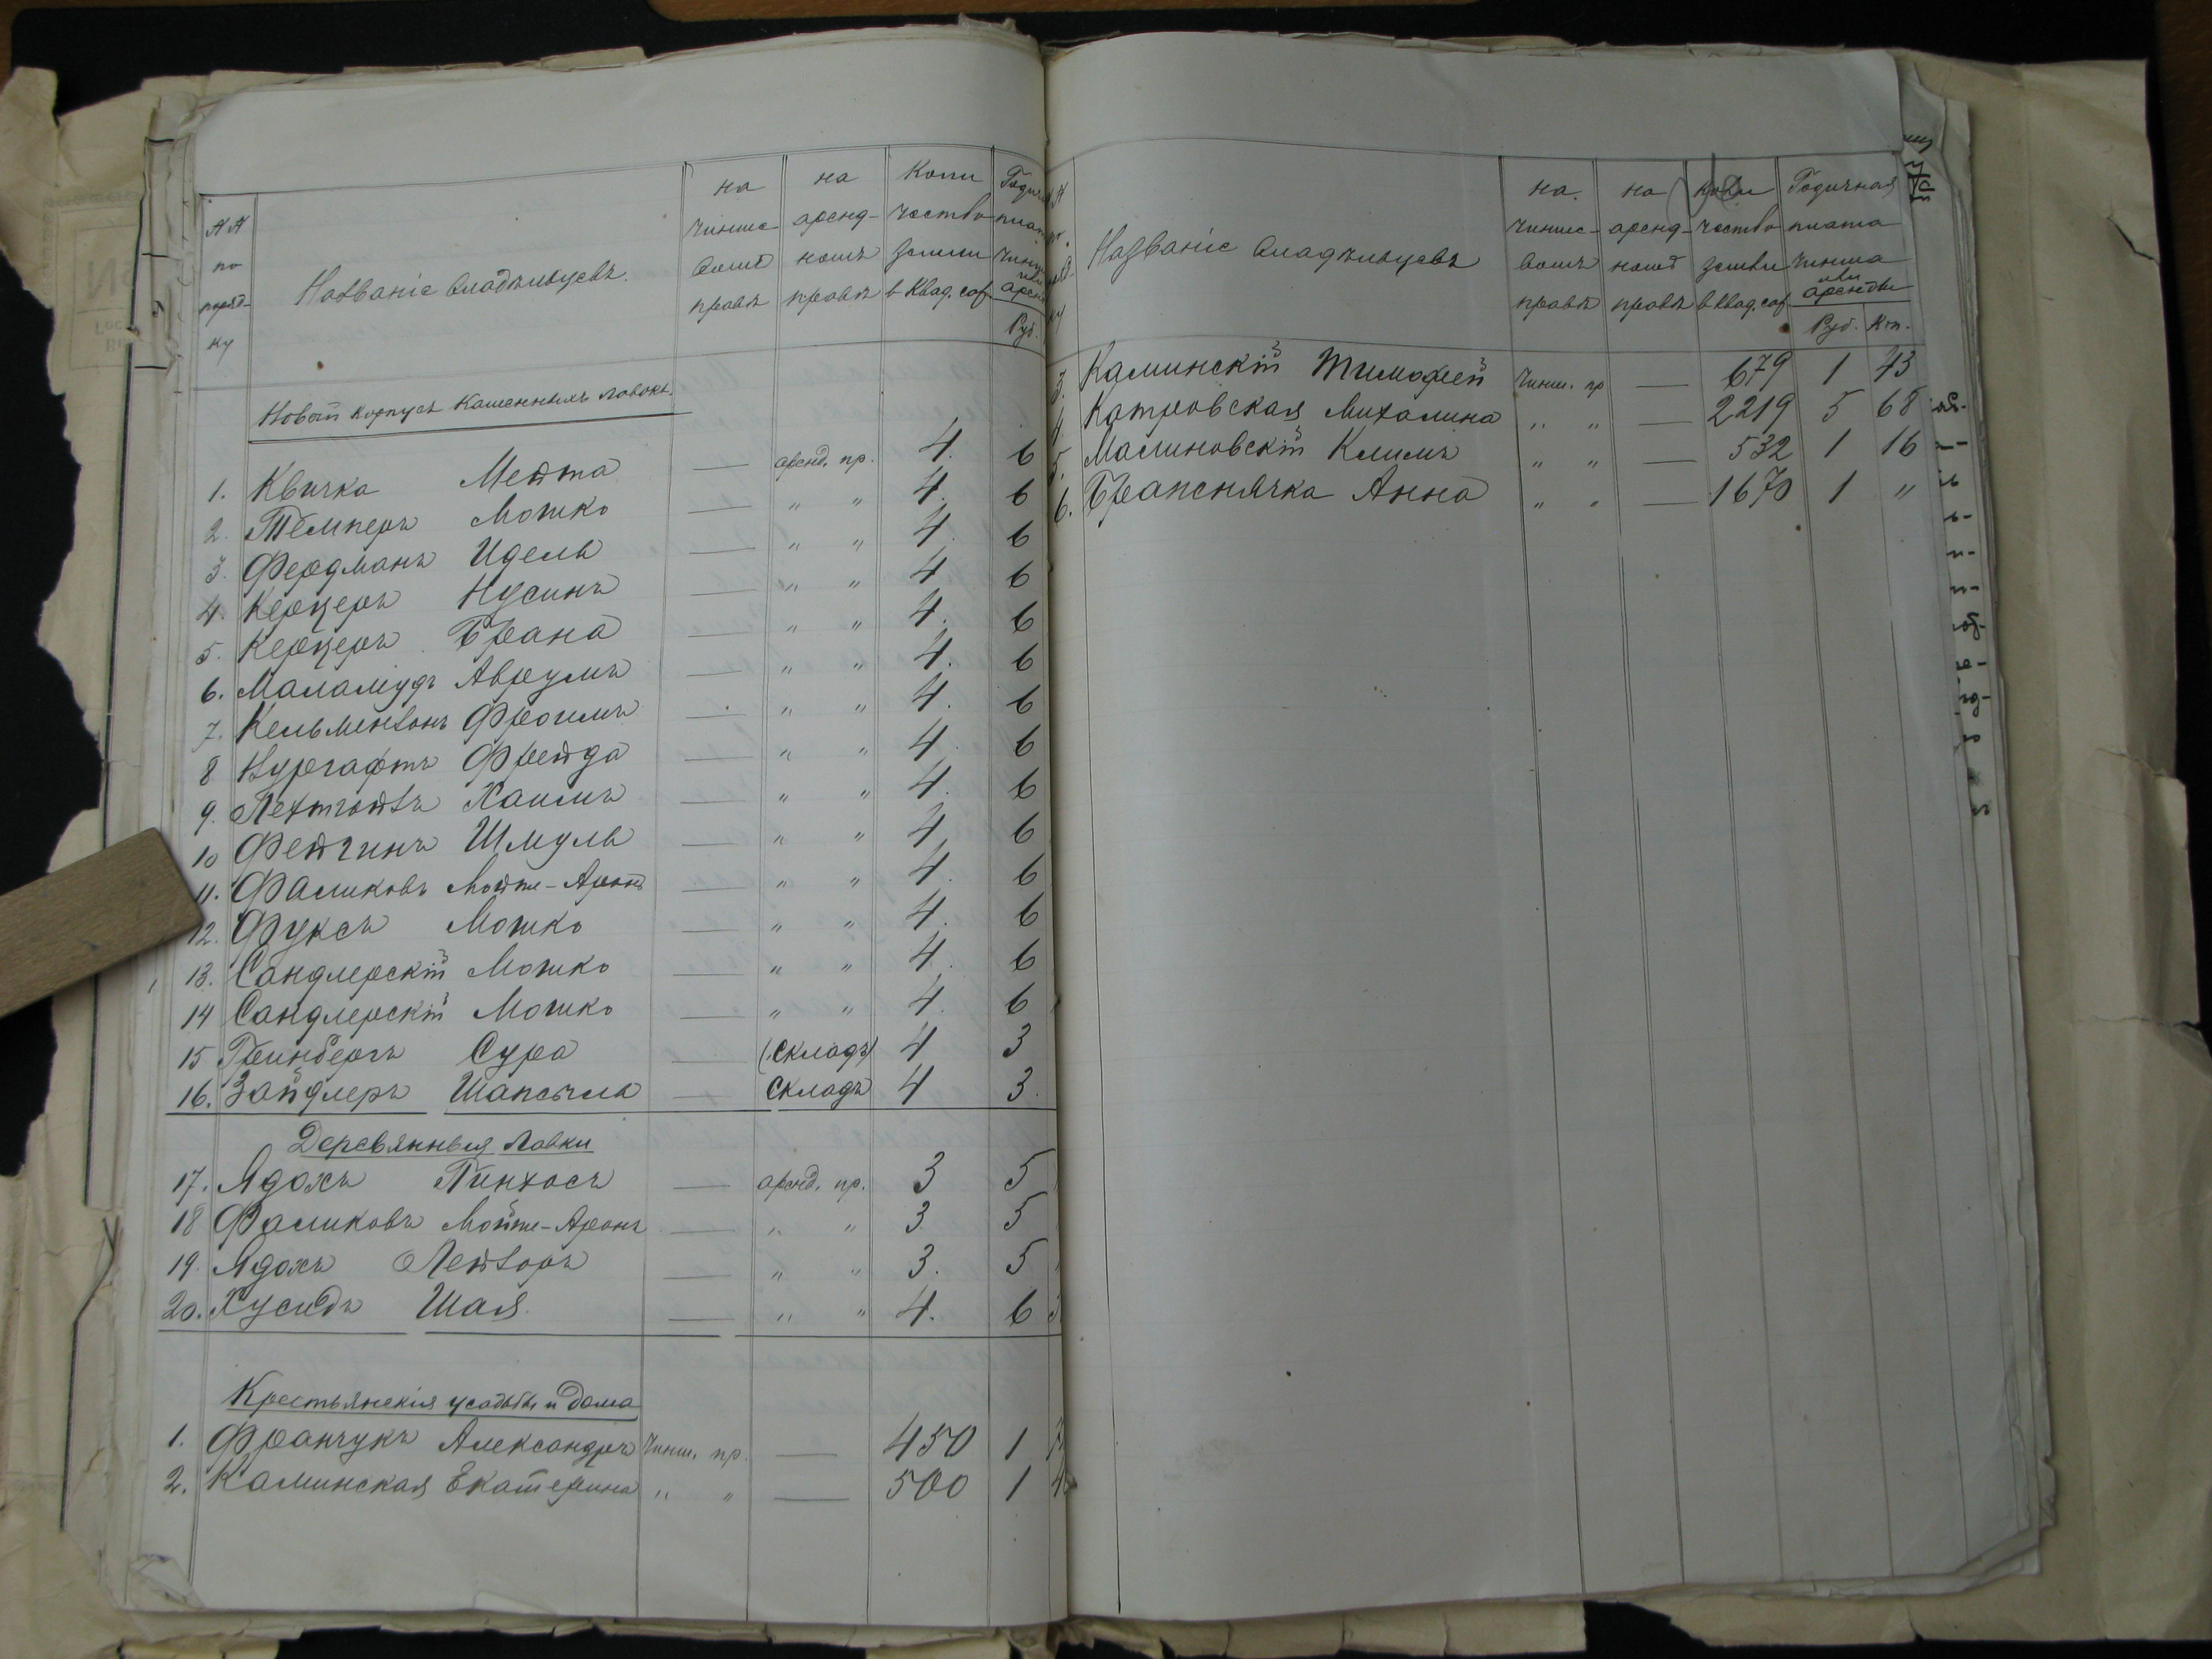 №№ по порядку
Названіе владѣльцевъ.
на чиншевомъ правѣ
на арендномъ правѣ
Количество земли в квад. саж.
Годичн плат чинш или арен
Руб.
Новый корпусъ каменныхъ лавокъ.
1. Квичка Мейта — аренд. пр. 4. 6
2. Темперъ Мошко — " " 4. 6
3. Фердманъ Идель — " " 4. 6
4. Керцеръ Нусинъ — " " 4 6
5. Керцеръ Брана — " " 4. 6
6. Маламудъ Аврумъ — " " 4. 6
7. Кельментонъ Фроимъ — " " 4. 6
8 Нургафтъ Фрейда — " " 4. 6
9. Хаимъ — " " 4. 6
10 Фейгинъ Шмуль — " " 4. 6
11. Фаликовъ Мойше-Аронъ — " " 4. 6
12. Фуксъ Мошко — " " 4. 6
13. Сандлерскій Мошко — " " 4. 6
14 Сандлерскій Мошко — " " 4. 6
15 Гринбергъ Сура — (складъ) 4 3
16. Зайдлеръ Шапсъль — складъ 4 3.
Деревянныя лавки
17. Ядохъ Пинхосъ — аренд. пр. 3 5
18 Фаликовъ Мойше-Аронъ — " " 3 5
19. Ядохъ Лейзоръ — " " 3. 5
20. Хусидъ Шая. — " " 4. 6
Крестьянскія усадьбы и дома
1. Франчукъ Александръ Чинш. пр. — 450 1
2. Каминская Екатерина " " — 500 1
Названіе владѣльцевъ
на чиншевомъ правѣ
на арендномъ правѣ
количество земли в квад. саж.
Годичная плата чинша или аренды
Руб. Коп.
3. Каминскій Тимофей Чинш. пр — 679 1 43
4 Катровская Михалина " " — 2219 5 68
5. Малиновскій Климъ " " — 532 1 16
6. Бранснячка Анна " " — 1670 1 "